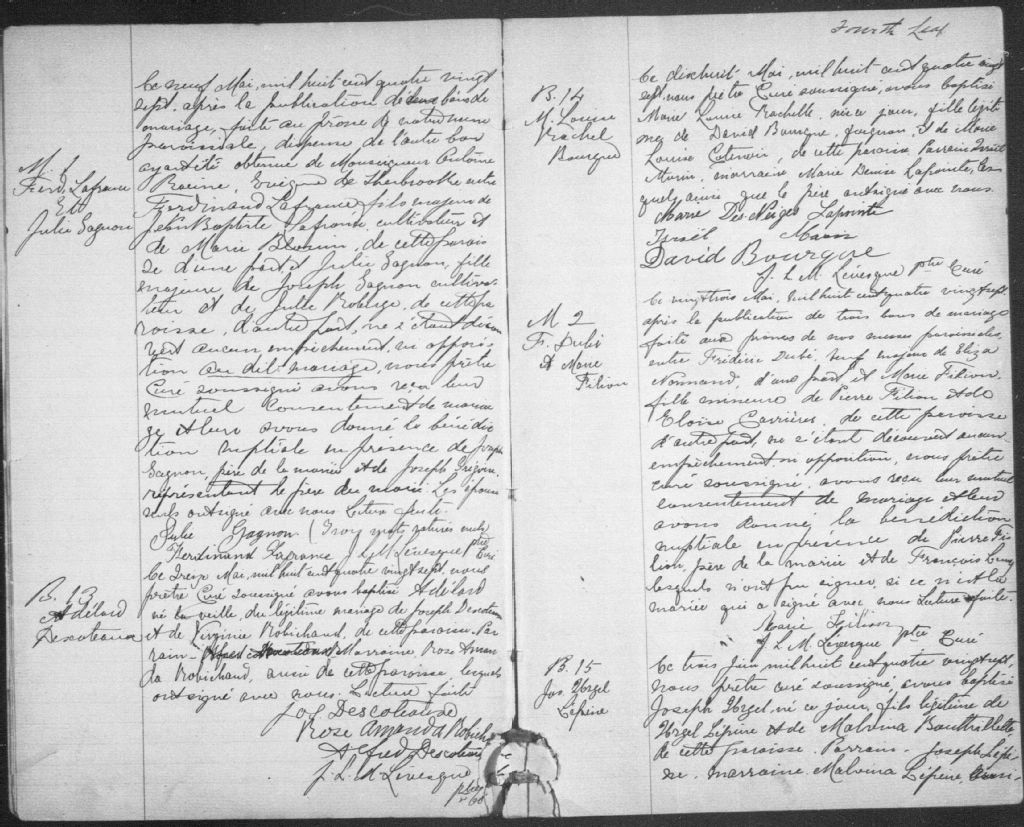 Le neuf Mai, mil huit cent quatre vingt
sept, après la publication de bans de
mariage, faite au prône de notre messe
paroissiale, dispense de l'autre ban
ayant été obtenue de Monseigneur Antoine
Racine, Evêque de Sherbrooke entre
M. 1
Ferd. Lafrance
Et
Julie Gagnon
Ferdinand Lafrance, fils majeur de
Jean Baptiste Lafrance, cultivateur et
de Marie, de cette parois
se d'une part, et Julie Gagnon, fille
majeure de Joseph Gagnon cultiva-
teur et de Julie Roberge, de cette pa
roisse, d'autre part, ne s'étant décou
vert aucun empêchement, ni opposi-
tion au dit mariage, nous prêtre
Curé soussigné avons reçu leur
mutuel consentement de maria
ge et leur avons donné la bénédic
tion nuptiale en présence de Joseph
Gagnon, père de la mariée et de Joseph Grégoire,
représentant le père du marié. Les époux
seuls ont signé avec nous. Lecture faite.
Julie Gagnon (Trois mots raturés nuls
Ferdinand Lafrance J. L. M. Levesque Ptre Curé
B. 13
Adélard
Descoteaux
Le treize Mai, mil huit cent quatre vingt sept, nous
prêtre Curé soussigné avons baptisé Adélard
né la veille, du légitime mariage de Joseph Descoteaux
et de Virginie Robichaud, de cette paroisse. Par
rain Alfred Descoteaux, Marraine, Rose Aman
da Robichaud, aussi de cette paroisse lesquels
ont signé avec nous. Lecture faite
Jos Descoteaux
Rose Amanda Robicha
Alfred Descoteaux
J. L. M. Levesque
ptre
Fourth Leaf
B. 14
M. Louise
Rachel
Bourque
Le dixhuit Mai, mil huit cent quatre vingt
sept, nous prêtre Curé soussigné, avons baptisé
Marie Louise Rachelle, née ce jour, fille légiti
me de David Bourque, et de Marie
Louise, de cette paroisse, Parrain Israël
Morin, marraine Marie Lapointe, les
quels ainsi que le père ont signé avec nous.
Marie Des Neiges Lapointe
Israël Morin
David Bourque
J. L. M. Levesque Ptre Curé
M 2
F. Dubé
et Marie
Filion
Le vingt trois Mai, mil huit cent quatre vingt sept,
après la publication de trois bans de mariage
faite aux prônes de nos messes paroissiales,
entre Frédéric Dubé, veuf majeur de Eliza
Normand, d'une part et Marie Filion,
fille mineure de Pierre Filion et de
Eloïse Carrière, de cette paroisse
d'autre part, ne s'étant découvert aucun
empêchement ni opposition, nous prêtre
curé soussigné, avons reçu leur mutuel
consentement de mariage et leur
avons donné la bénédiction
nuptiale en présence de Pierre Fi
lion, père de la mariée et de François
lesquels n'ont pu signer, si ce n'est la
mariée qui a signé avec nous Lecture faite.
Marie Filion
J. L. M. Levesque ptre Curé
B. 15
Jos. Urgel
Lépine
Le trois Juin, mil huit cent quatre vingt sept,
nous prêtre curé soussigné, avons baptisé
Joseph Urgel, né ce jour, fils légitime de
Urgel Lépine et de Malvina
de cette paroisse. Parrain Joseph Lépi-
ne. marraine Malvina Lépine,